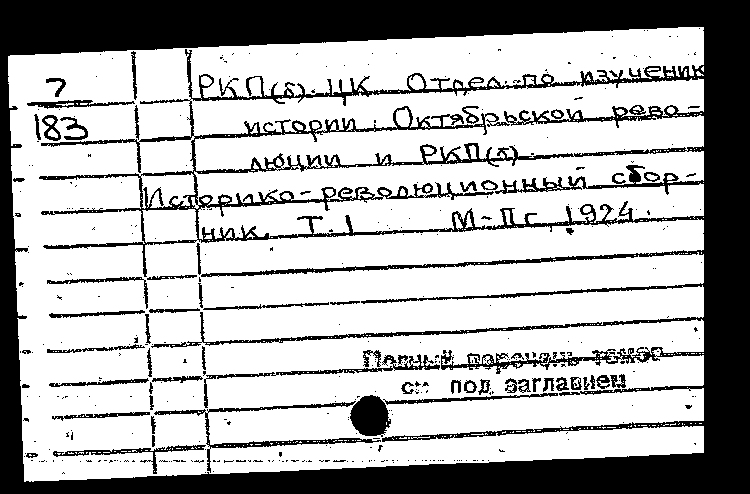 7
183
РКП(б). ЦК Отдел по изучению
истории Октябрьской рево-
люции и РКП(б).
Историко-революционный сбор-
ник. Т. 1 М-Пг, 1924.
Полный перечень томов
см под заглавием